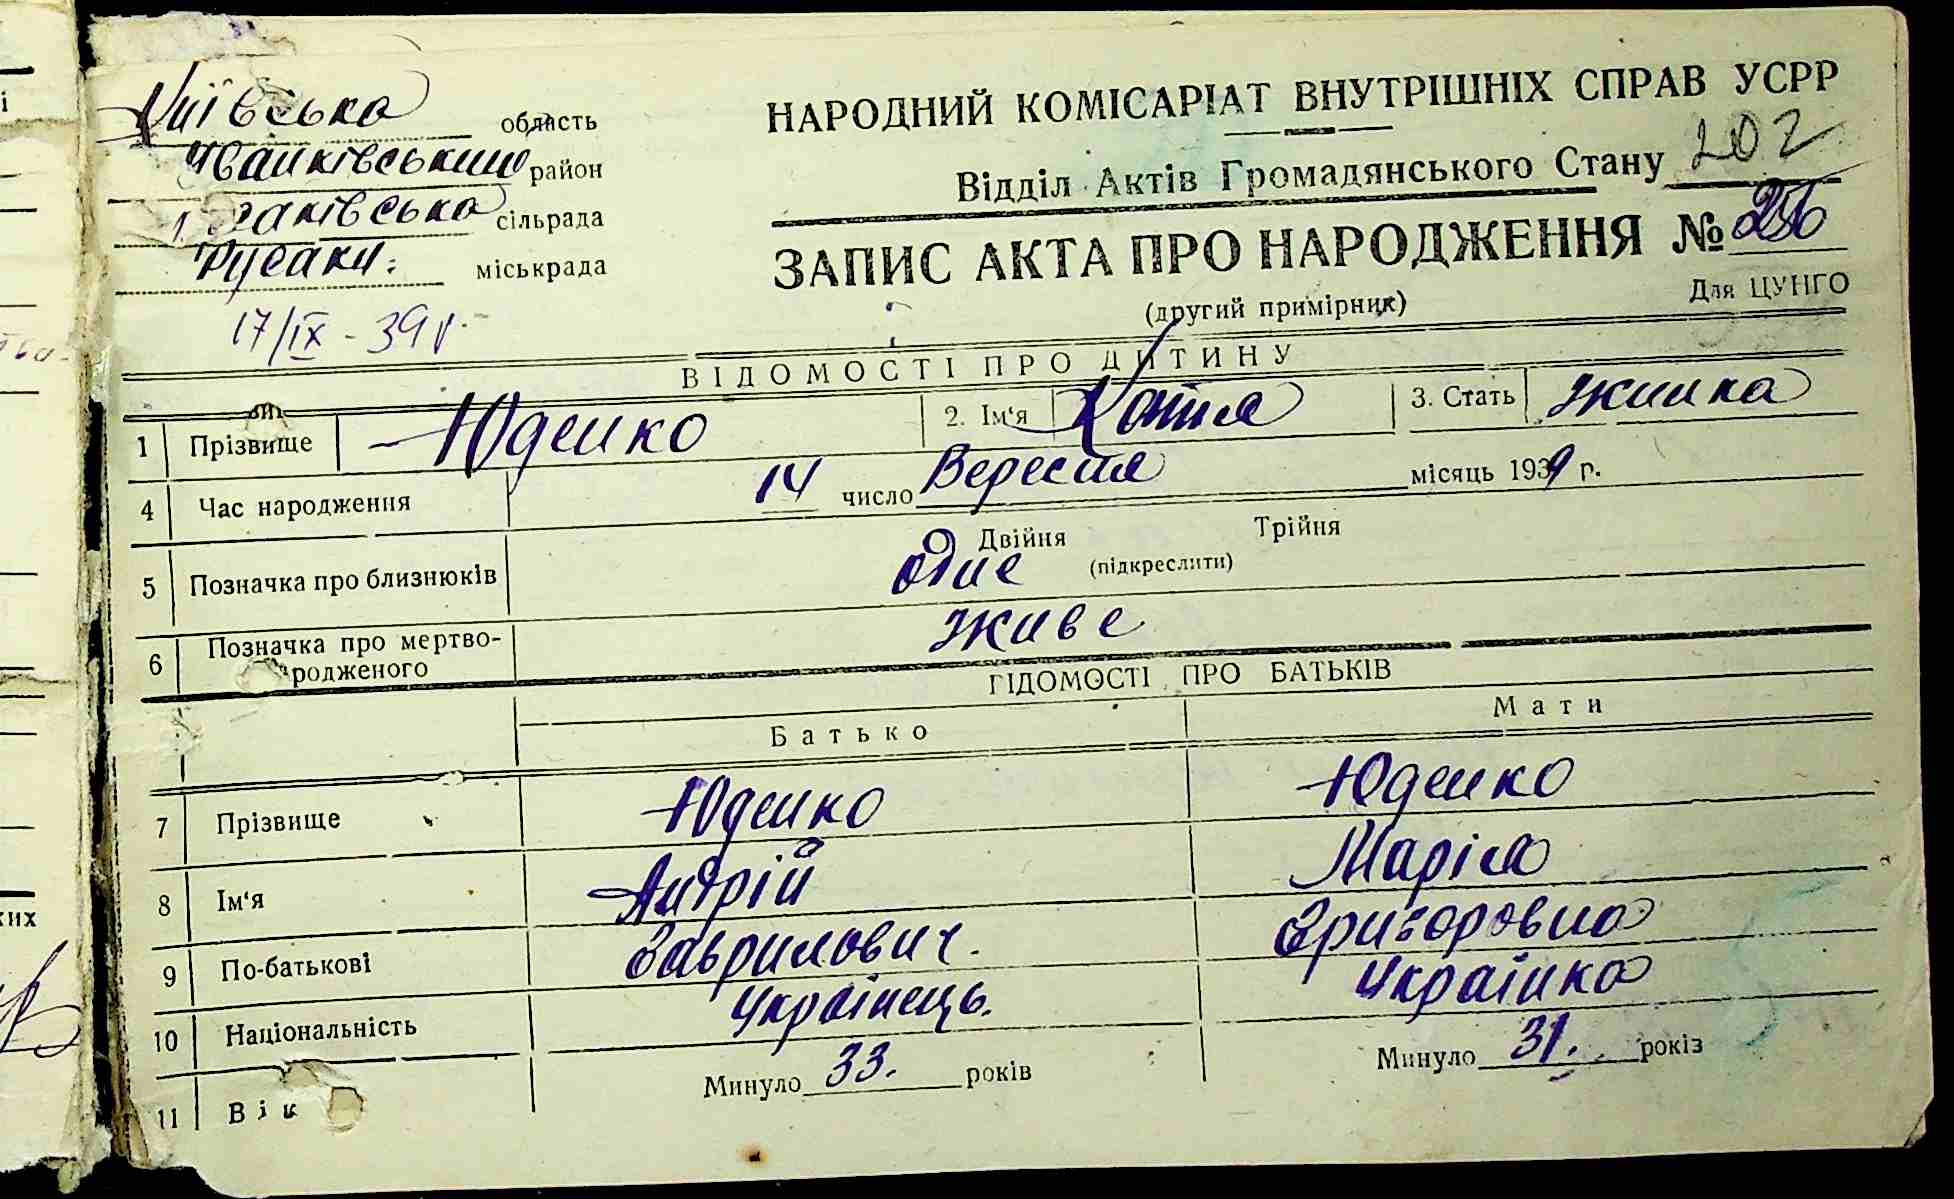 Київська область
Іванківський район
сільрада
Русаки. міськрада
17/IX - 39 г.
НАРОДНИЙ КОМІСАРІАТ ВНУТРІШНІХ СПРАВ УСРР
Відділ Актів Громадянського Стану 202
ЗАПИС АКТА ПРО НАРОДЖЕННЯ №
(другий примірник)
Для ЦУНГО
ВІДОМОСТІ ПРО ДИТИНУ
1 Прізвище Юденко 2. Ім‘я Катя 3. Стать Жинка
4 Час народження 14 число Вересня місяць 1939 р.
5 Позначка про близнюків одне Двійня Трійня
(підкреслити)
6 Позначка про мертво-
родженого Живе
ВІДОМОСТІ ПРО БАТЬКІВ
Батько Мати
7 Прізвище Юденко Юденко
8 Ім‘я Андрій Марія
9 По-батькові Гаврилович. Григоровна
10 Національність Українець. Українка
11 Вік Минуло 33. років Минуло 31. років